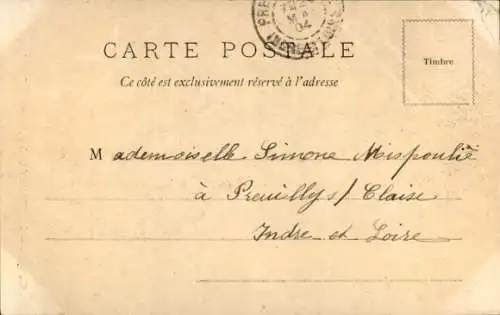 PRE
MAI
04
CARTE POSTALE
Timbre
Ce côté est exclusivement réservé à l'adresse
Mademoiselle Simone Mispoulié
à Preuillys/Claise
Indre et Loire